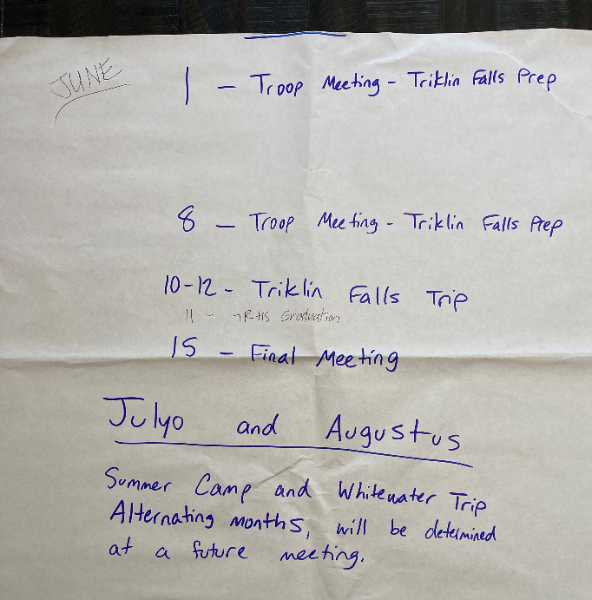 JUNE
1 - Troop Meeting - Triklin Falls Prep
8 - Troop Meeting - Triklin Falls Prep
10-12 - Triklin Falls Trip
11 - Graduation
15 - Final Meeting
Julyo and Augustus
Summer Camp and Whitewater Trip
Alternating months, will be determined
at a future meeting.